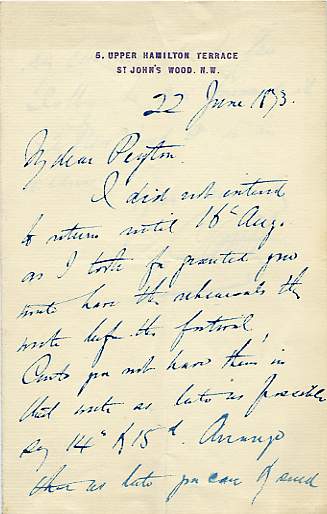 5, UPPER HAMILTON TERRACE
ST JOHN'S WOOD. N.W.
22 June 1873.
My dear Peyton.
I did not intend
to return until 16th Aug.
as I took for granted you
would have the rehearsals the
week before the festival,
Could you not have them in
that week as late as possible
say 14th & 15th. Arrange
as late you can & send